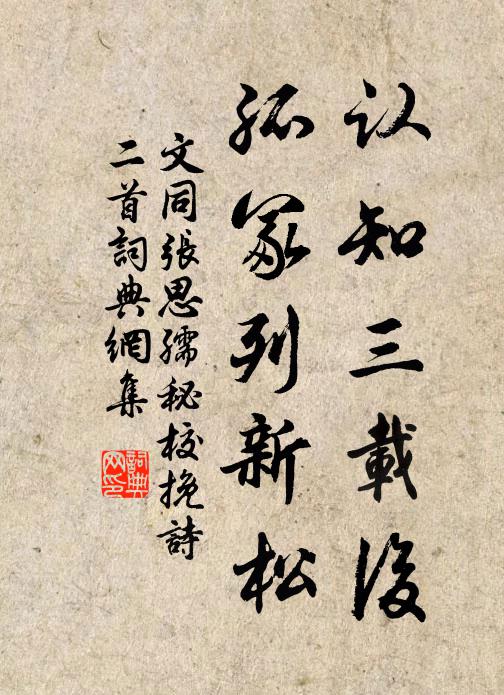 认知三載後
孤冢列新松
文同張思孺秘校挽詩
二首詞典網集
詞典
网印